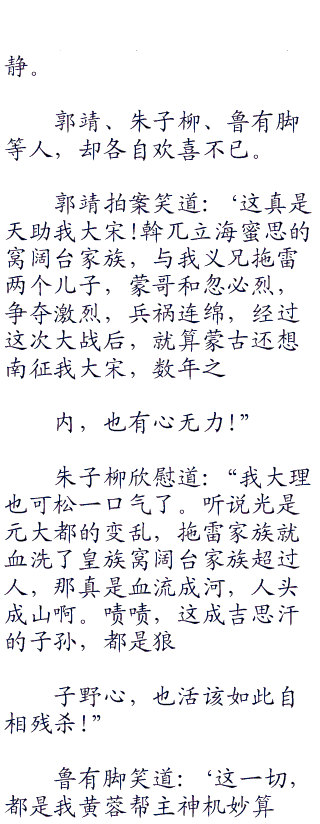 静。
郭靖、朱子柳、鲁有脚
等人，却各自欢喜不已。
郭靖拍案笑道：‘这真是
天助我大宋!斡兀立海蜜思的
窝阔台家族，与我义兄拖雷
两个儿子，蒙哥和忽必烈，
争夺激烈，兵祸连绵，经过
这次大战后，就算蒙古还想
南征我大宋，数年之
内，也有心无力!”
朱子柳欣慰道：“我大理
也可松一口气了。听说光是
元大都的变乱，拖雷家族就
血洗了皇族窝阔台家族超过
人，那真是血流成河，人头
成山啊。啧啧，这成吉思汗
的子孙，都是狼
子野心，也活该如此自
相残杀!”
鲁有脚笑道：‘这一切，
都是我黄蓉帮主神机妙算